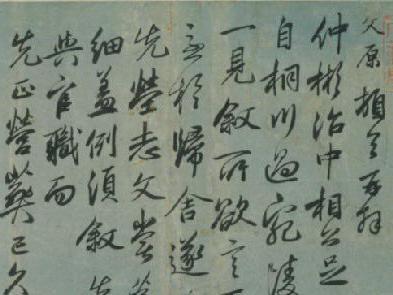 文原頓首再拜
仲彬治中相公足
自桐川過宛陵
一見敘所欲言
於歸舍遂
先塋志文嘗
細蓋例須敘先
與官職而
先正營葬已久